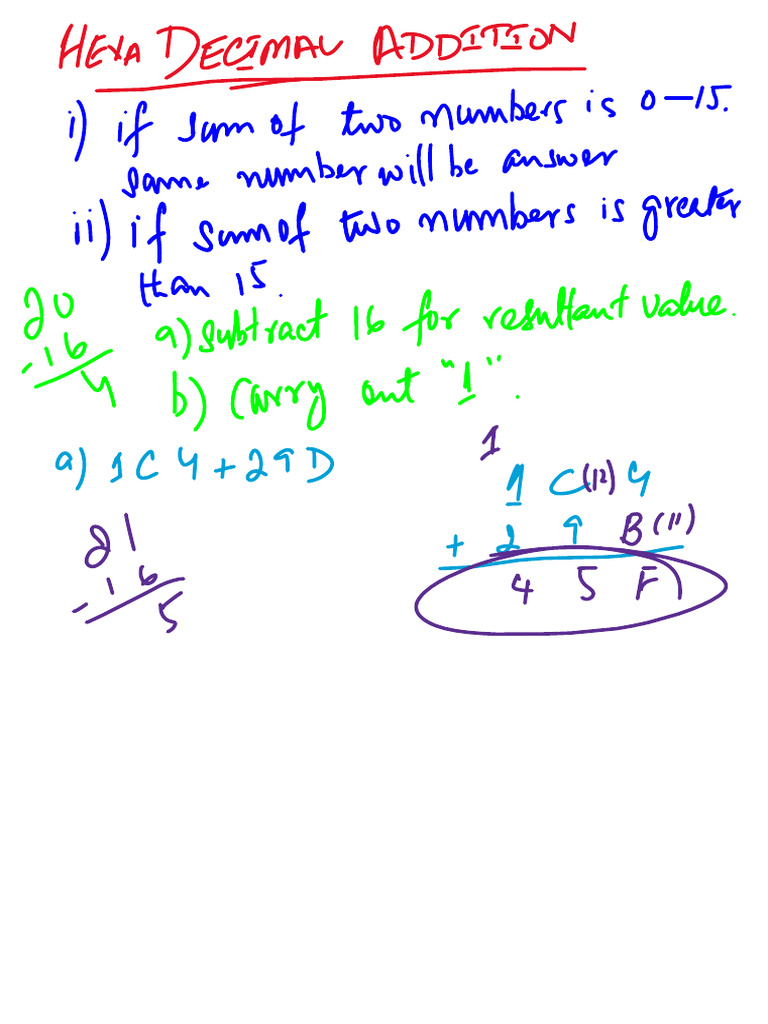 HEXA DECIMAL ADDITION
i) if sum of two numbers is 0-15.
same number will be answer
ii) if sum of two numbers is greater
than 15.
20
-16
4
a) subtract 16 for resultant value.
b) Carry out "1".
a) 1C4+29D
21
-16
5
1
1 C(12) 4
+ 2 9 B(11)
4 5 F